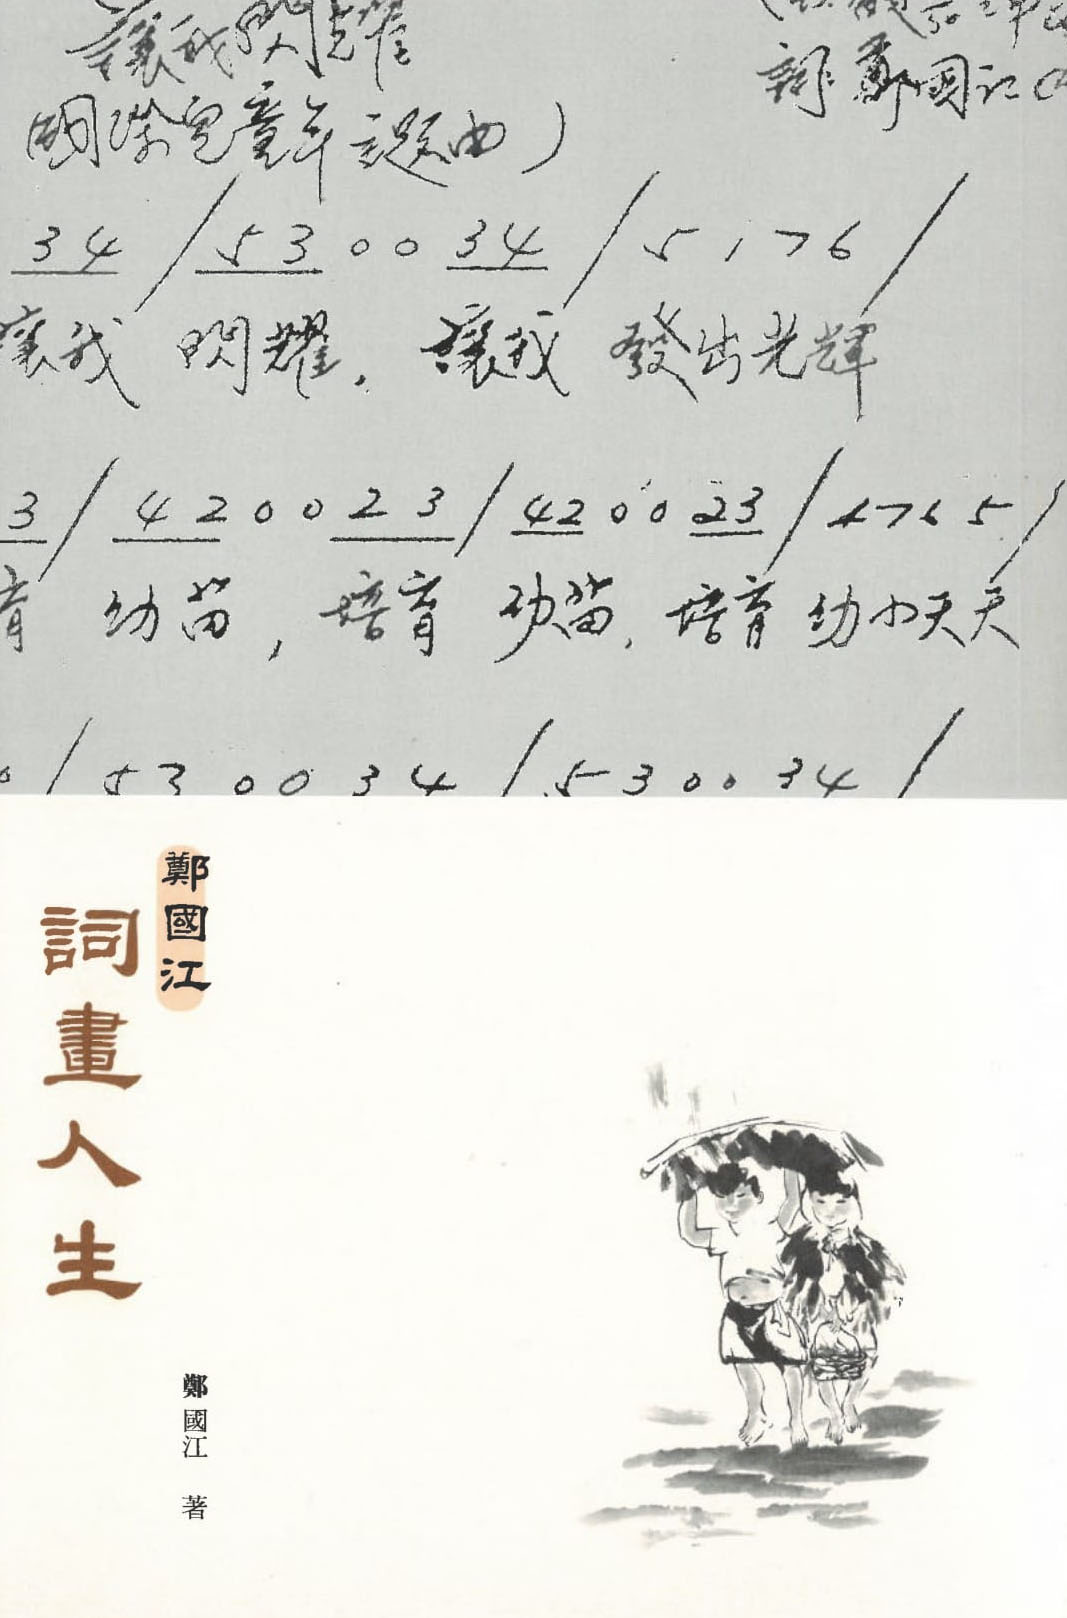 讓我閃耀
詞 鄭國江
國際兒童年主題曲)
34 / 53 0 0 34 / 5 1 7 6 /
讓我 閃耀, 讓我 發出光輝
3 / 4 2 0 0 2 3 / 42 0 0 23 / 4 7 6 5 /
育 幼苗, 培育 幼苗, 培育 幼小天天
0 / 5 3 0 0 3 4 / 5 3 0 0 3 4 /
鄭國江
詞畫人生
鄭國江 著